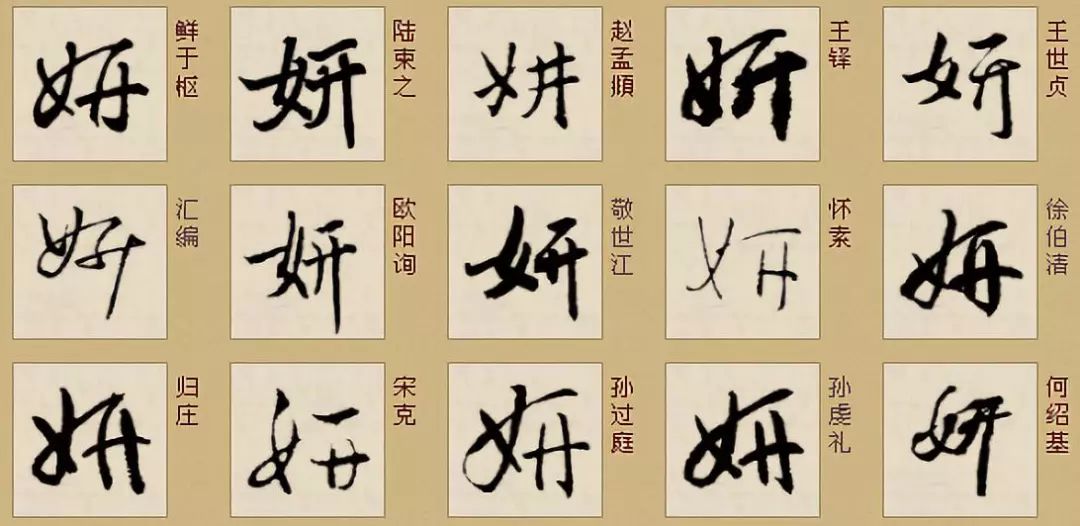 妍 鲜于枢
妍 陆柬之
妍 赵孟頫
妍 王铎
妍 王世贞
妍 汇编
妍 欧阳询
妍 敬世江
妍 怀素
妍 徐伯清
妍 归庄
妍 宋克
妍 孙过庭
妍 孙虔礼
妍 何绍基